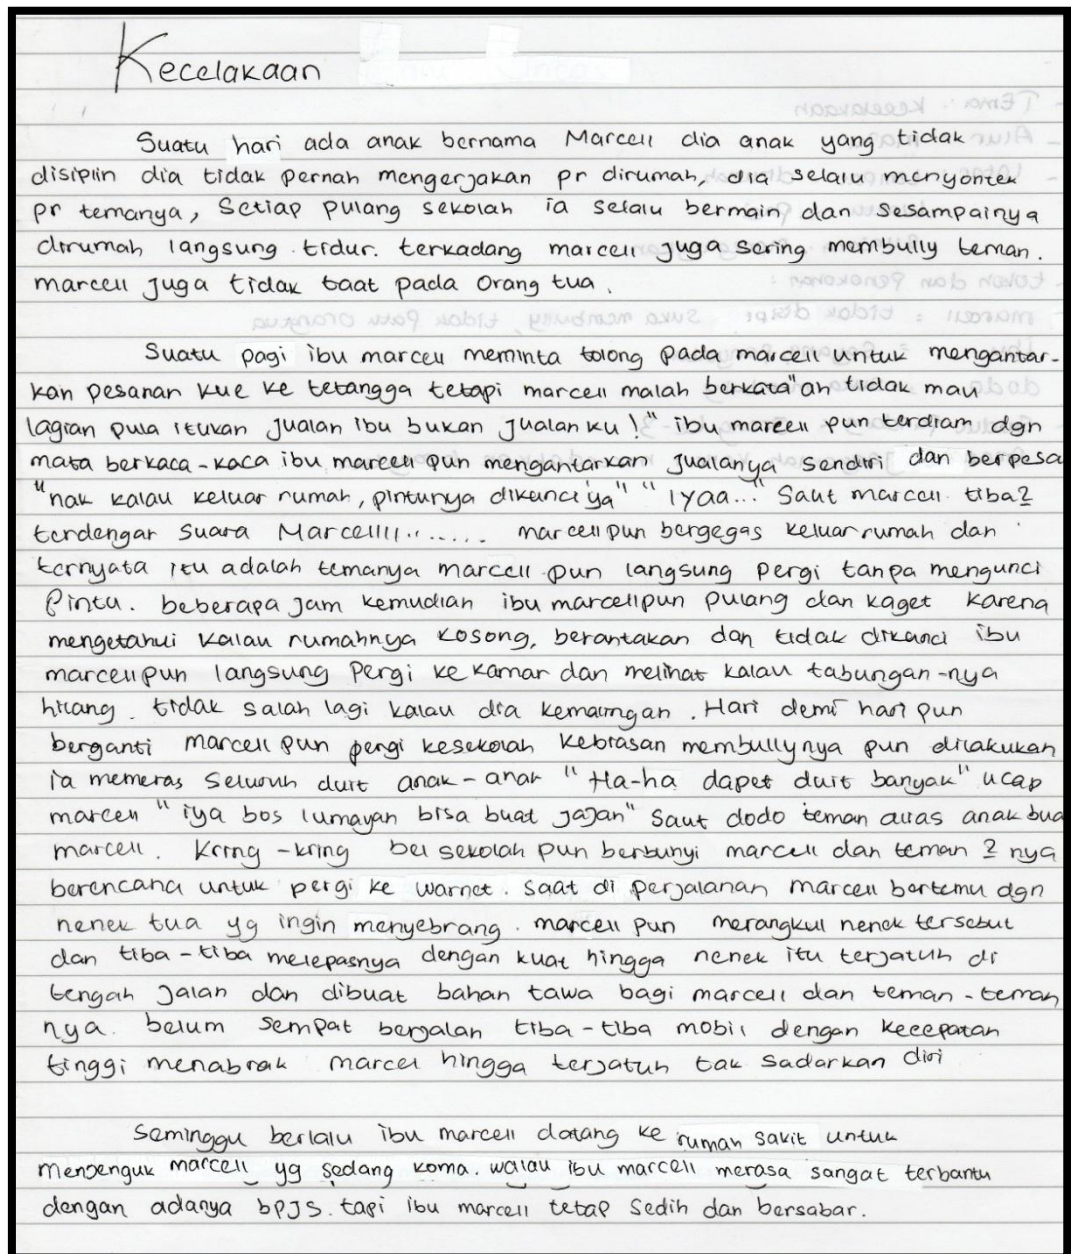 Kecelakaan
Suatu hari ada anak bernama Marcell dia anak yang tidak
disiplin dia tidak pernah mengerjakan pr dirumah, dia selalu menyontek
pr temanya, Setiap pulang sekolah ia selalu bermain dan Sesampainya
dirumah langsung tidur. terkadang marcell juga sering membully teman.
marcell juga tidak taat pada orang tua.
Suatu pagi ibu marcell meminta tolong pada marcell untuk mengantar-
kan pesanan kue ke tetangga tetapi marcell malah berkata "ah tidak mau
lagian pula itukan jualan ibu bukan jualan ku!" ibu marcell pun terdiam dgn
mata berkaca-kaca ibu marcell pun mengantarkan jualanya sendiri dan berpesa
"nak kalau keluar rumah, pintunya dikunci ya" "iyaa..." Saut marcell. tiba2
terdengar suara Marcellll....... marcell pun bergegas keluar rumah dan
ternyata itu adalah temanya marcell pun langsung pergi tanpa mengunci
pintu. beberapa jam kemudian ibu marcellpun pulang dan kaget karena
mengetahui kalau rumahnya kosong, berantakan dan tidak dikunci ibu
marcellpun langsung pergi ke kamar dan melihat kalau tabungan-nya
hilang. tidak salah lagi kalau dia kemalingan. Hari demi hari pun
berganti marcell pun pergi kesekolah kebiasan membullynya pun dilakukan
ia memeras seluruh duit anak-anak "Ha-ha dapet duit banyak" ucap
marcell "iya bos lumayan bisa buat jajan" Saut dodo teman alias anak bua
marcell. Kring-kring bel sekolah pun berbunyi marcell dan teman2 nya
berencana untuk pergi ke warnet. saat di perjalanan marcell bertemu dgn
nenek tua yg ingin menyebrang. marcell pun merangkul nenek tersebut
dan tiba-tiba melepasnya dengan kuat hingga nenek itu terjatuh di
tengah jalan dan dibuat bahan tawa bagi marcell dan teman-teman
nya. belum sempat berjalan tiba-tiba mobil dengan kecepatan
tinggi menabrak marcel hingga terjatuh tak sadarkan diri
Seminggu berlalu ibu marcell datang ke rumah sakit untuk
menjenguk marcell yg sedang koma. walau ibu marcell merasa sangat terbantu
dengan adanya bpJS. tapi ibu marcell tetap sedih dan bersabar.